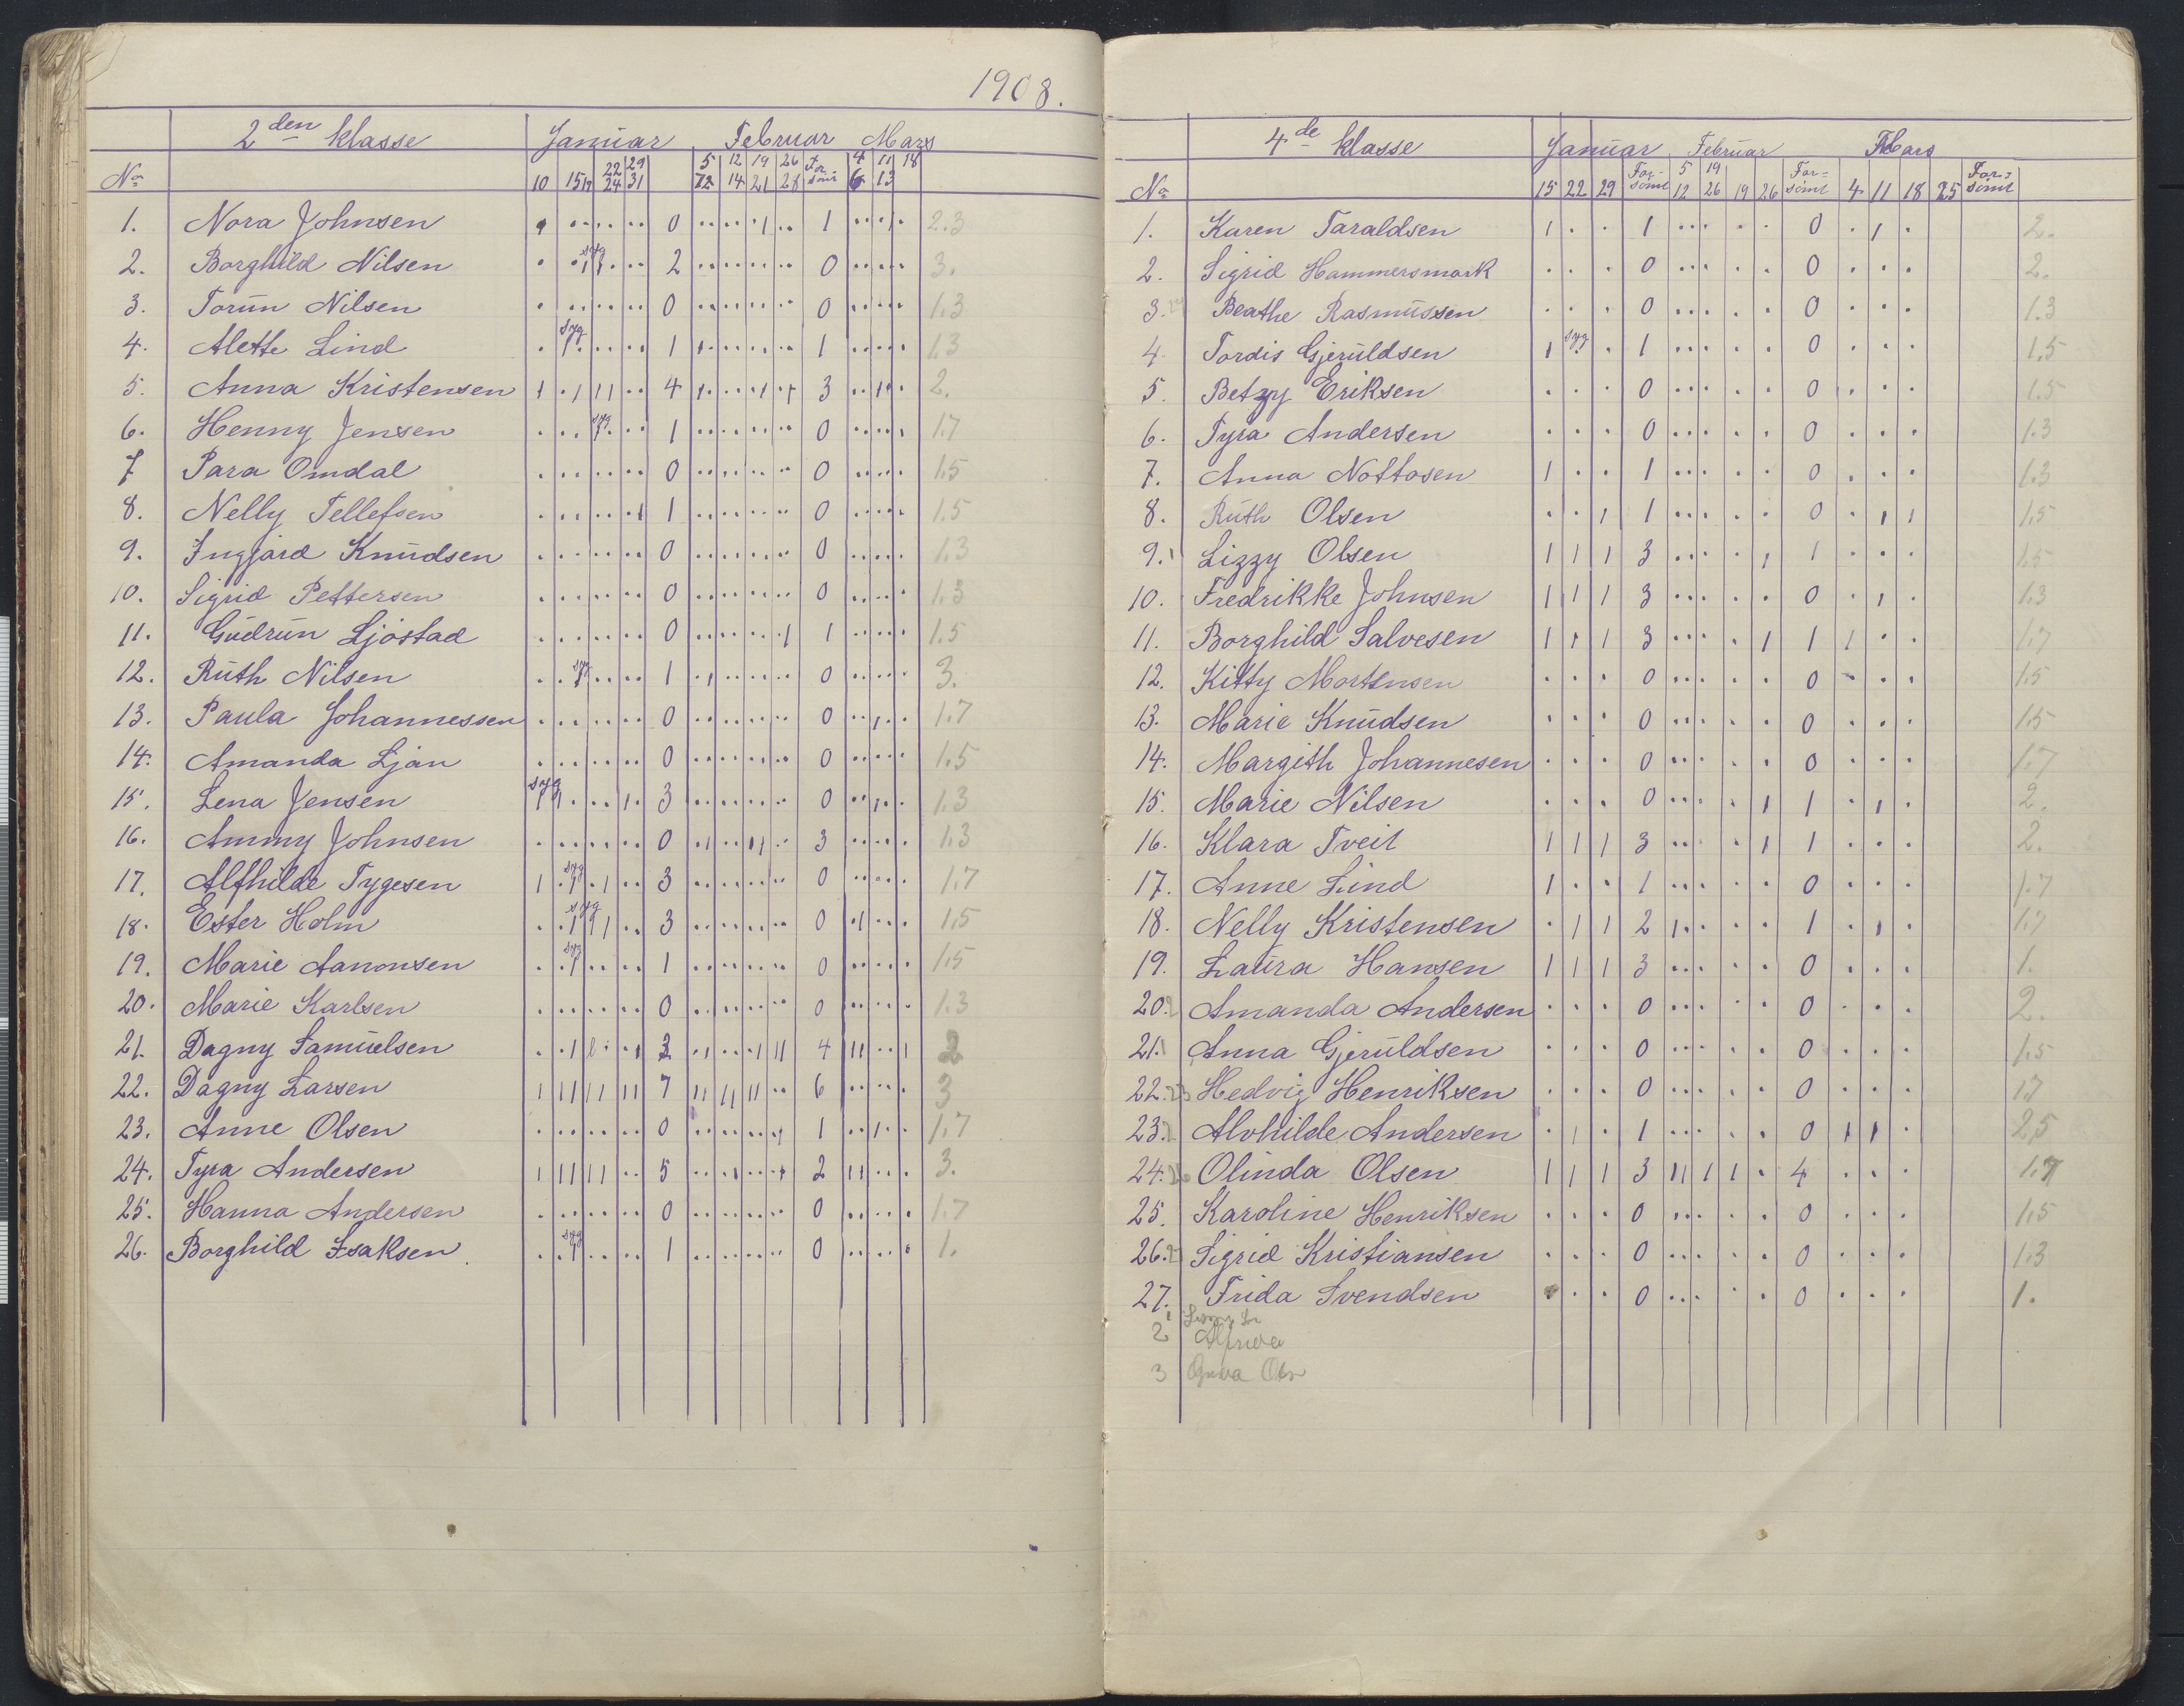 1908.
2den klasse Januar Februar Mars
No 10 15 17 22 24 29 31 5 12 12 14 19 21 26 28 For sömt 4 6 11 13 18
1. Nora Johnsen 0 1 2.3
2. Borghild Nilsen syg 2 0 3.
3. Torun Nilsen 0 0 1.3
4. Alette Lind syg 1 1 1.3
5. Anna Kristensen 4 3 2.
6. Henny Jensen syg 1 0 1.7
7 Para Omdal 0 0 1.5
8. Nelly Tellefsen 1 0 1.5
9. Ingjärd Knudsen 0 0 1.3
10. Sigrid Pettersen 0 0 1.3
11. Gudrun Ljöstad 0 1 1.5
12. Ruth Nilsen syg 1 0 3.
13. Paula Johannessen 0 0 1.7
14. Amanda Ljan 0 0 1.5
15. Lena Jensen syg 3 0 1.3
16. Ammy Johnsen 0 3 1.3
17. Alfhilde Tygesen syg 3 0 1.7
18. Ester Holm syg 3 0 1.5
19. Marie Aanonsen syg 1 0 1.5
20. Marie Karlsen 0 0 1.3
21. Dagny Samuelsen 4 2
22. Dagny Larsen 7 6 3
23. Anne Olsen 0 1 1.7
24. Tyra Andersen 5 2 3.
25. Hanna Andersen 0 0 1.7
26. Borghild Isaksen syg 1 0 1.
4de klasse Januar Februar Mars
No 15 22 29 For-sömt 5 12 19 26 19 26 For=sömt 4 11 18 25 For=sömt
1. Karen Taraldsen 1 0 2.
2. Sigrid Hammersmark 0 0 2.
3. Beathe Rasmussen 0 0 1.3
4. Tordis Gjeruldsen syg 1 0 1.5
5. Betzy Eriksen 0 0 1.5
6. Tyra Andersen 0 0 1.3
7. Anna Nottosen 1 0 1.3
8. Ruth Olsen 1 0 1.5
9. Lizzy Olsen 3 1 1.5
10. Fredrikke Johnsen 3 0 1.3
11. Borghild Salvesen 3 1 1.7
12. Kitty Mortensen 0 0 1.5
13. Marie Knudsen 0 0 1.5
14. Margith Johannesen 0 0 1.7
15. Marie Nilsen 0 1 2.
16. Klara Tveit 3 1 2.
17. Anne Lind 1 0 1.7
18. Nelly Kristensen 2 1 1.7
19. Laura Hansen 3 0 1.
20. Amanda Andersen 0 0 2.
21. Anna Gjeruldsen 0 0 1.5
22. Hedvig Henriksen 0 0 1.7
23. Alvhilde Andersen 1 0 2.5
24. Olinda Olsen 3 4 1.7
25. Karoline Henriksen 0 0 1.5
26. Sigrid Kristiansen 0 0 1.3
27. Frida Svendsen 0 0 1.
2
3